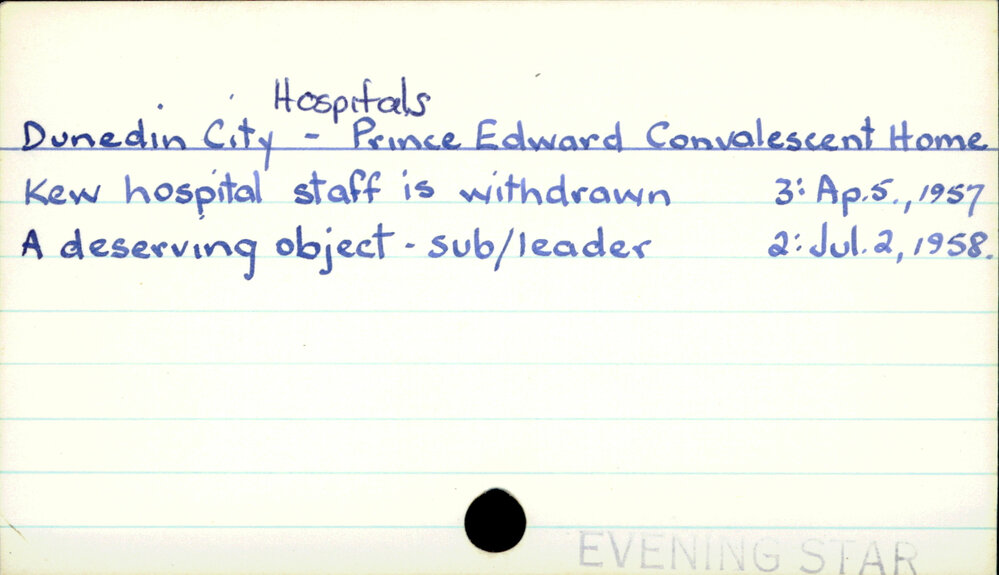 Hospitals
Dunedin City - Prince Edward Convalescent Home
Kew hospital staff is withdrawn 3: Ap.5., 1957
A deserving object - sub/leader 2: Jul. 2, 1958.
EVENING STAR